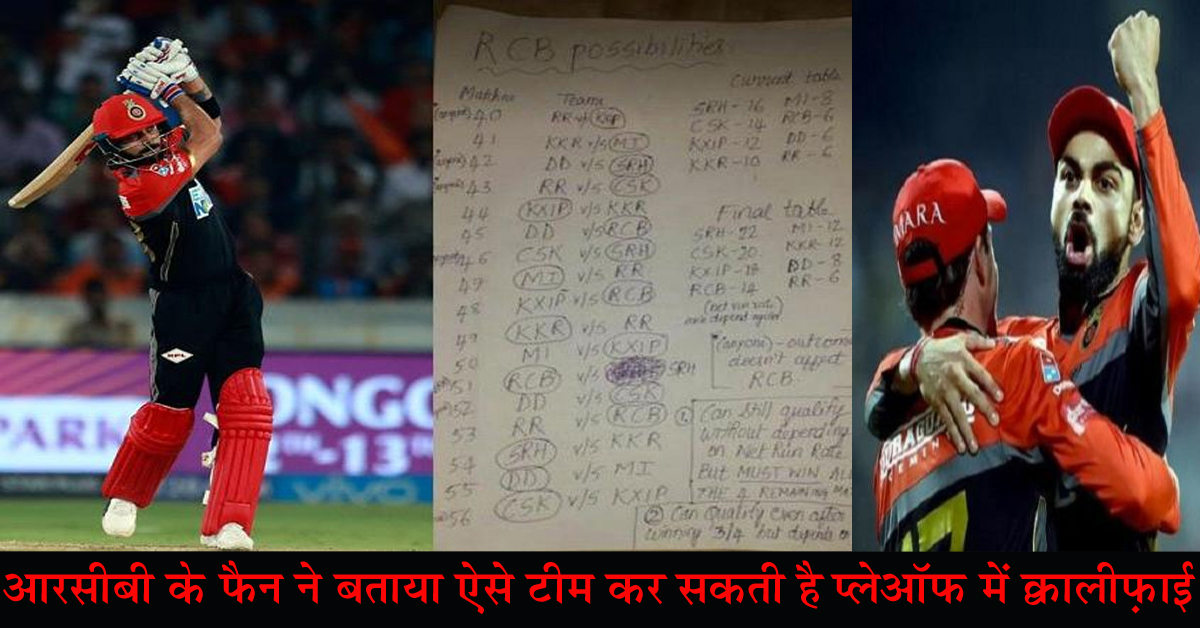 RCB possibilities
Current table
Matches Teams
SRH - 16 MI - 8
40 RR v/s KXIP
CSK - 14 RCB - 6
41 KKR v/s MI
KXIP - 12 DD - 6
42 DD v/s SRH
KKR - 10 RR - 6
43 RR v/s CSK
44 KXIP v/s KKR
Final table
45 DD v/s RCB
SRH - 22 MI - 12
46 CSK v/s SRH
CSK - 20 KKR - 12
47 MI v/s RR
KXIP - 18 DD - 8
48 KXIP v/s RCB
RCB - 14 RR - 6
(net run rate
49 KKR v/s RR
50 MI v/s KXIP
(anyone) - outcome
doesn't affect
RCB.
51 RCB v/s SRH
52 DD v/s CSK
53 RR v/s RCB
54 SRH v/s KKR
55 DD v/s MI
56 CSK v/s KXIP
① Can still qualify
without depending
on Net Run Rate
But MUST WIN ALL
THE 4 REMAINING
② Can Qualify even after
winning 3/4 but depends on
PARK
ONGC
-13
VIVO
MARA
आरसीबी के फैन ने बताया ऐसे टीम कर सकती है प्लेऑफ में क्वालीफ़ाई